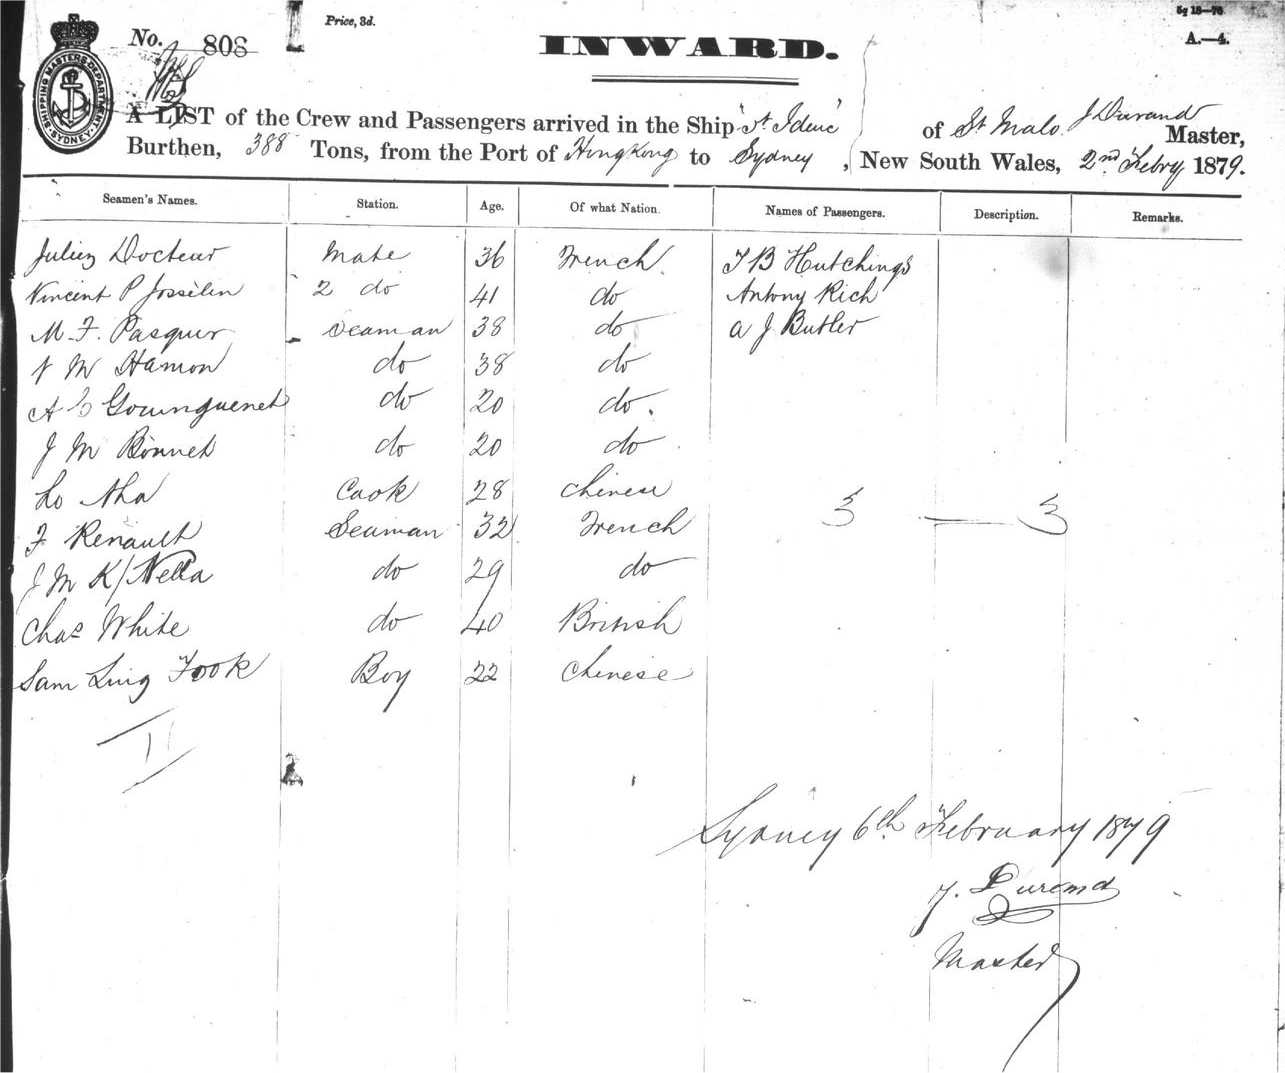 Price, 3d.
A.—4.
No. 808
INWARD.
SHIPPING MASTERS DEPARTMENT SYDNEY
A LIST of the Crew and Passengers arrived in the Ship "St Ideuc" of St Malo J Durand Master,
Burthen, 388 Tons, from the Port of Hong Kong to Sydney, New South Wales, 2nd Febry 1879.
Seamen's Names. Station. Age. Of what Nation. Names of Passengers. Description. Remarks.
Julien Docteur Mate 36 French J B Hutchings
Vincent P Josselin 2 do 41 do Antony Rich
M. F. Pasquer Seaman 38 do A J Butler
M Hamon do 38 do
A Gouinguenet do 20 do.
J M Bonnet do 20 do
Lo Aha Cook 28 Chinese 3 — 3
F Renault Seaman 32 French
J M K/Nella do 29 do
Chas White do 40 British
Sam Ling Fook Boy 22 Chinese
11
Sydney 6th February 1879
J. Durand
Master